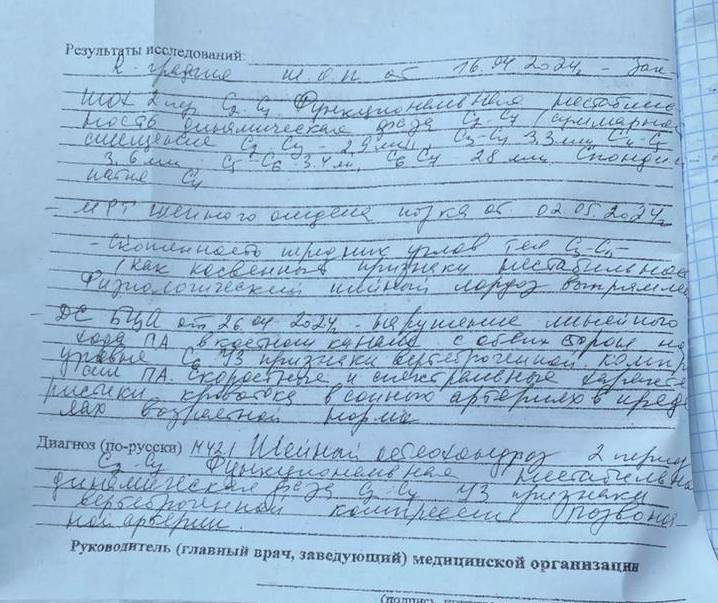 Результаты исследований:
R-графия ш.о.п. от 16.04 2024г – Зак
ШОХ 2 пер C2-C7. Функциональная нестабиль
ность динамическая фаза C2-C7 (суммарное
смещение C2-C3 - 2,9 мм, C3-C4 3.3 мм C4-C5
3,6 мм C5-C6 3.4 м, C6 C7 28 мм Спондил
C7
- МРТ шейного отдела от 02.05.2024г
- Скошенность передних углов тел C3-C5
(как косвенный признаки нестабильнос
Физиологический шейный лордоз выпрямле
- ДС БЦА от 26.04 2024г - нарушение линейного
хода ПА в костном канале с обеих сторон на
уровне C6 УЗ признаки вертеброгенной компр
сии ПА. Скоростные и спектральные характе
ристики кровотока в сонных артериях в преде
лах возрастной нормы
Диагноз (по-русски) М42.1 Шейный остеохондроз 2 период
C2-C7 Функциональная нестабильно
динамическая фаза C2-C7 УЗ признаки
вертеброгенной компрессии позвоноч-
ной артерии.
Руководитель (главный врач, заведующий) медицинской организации